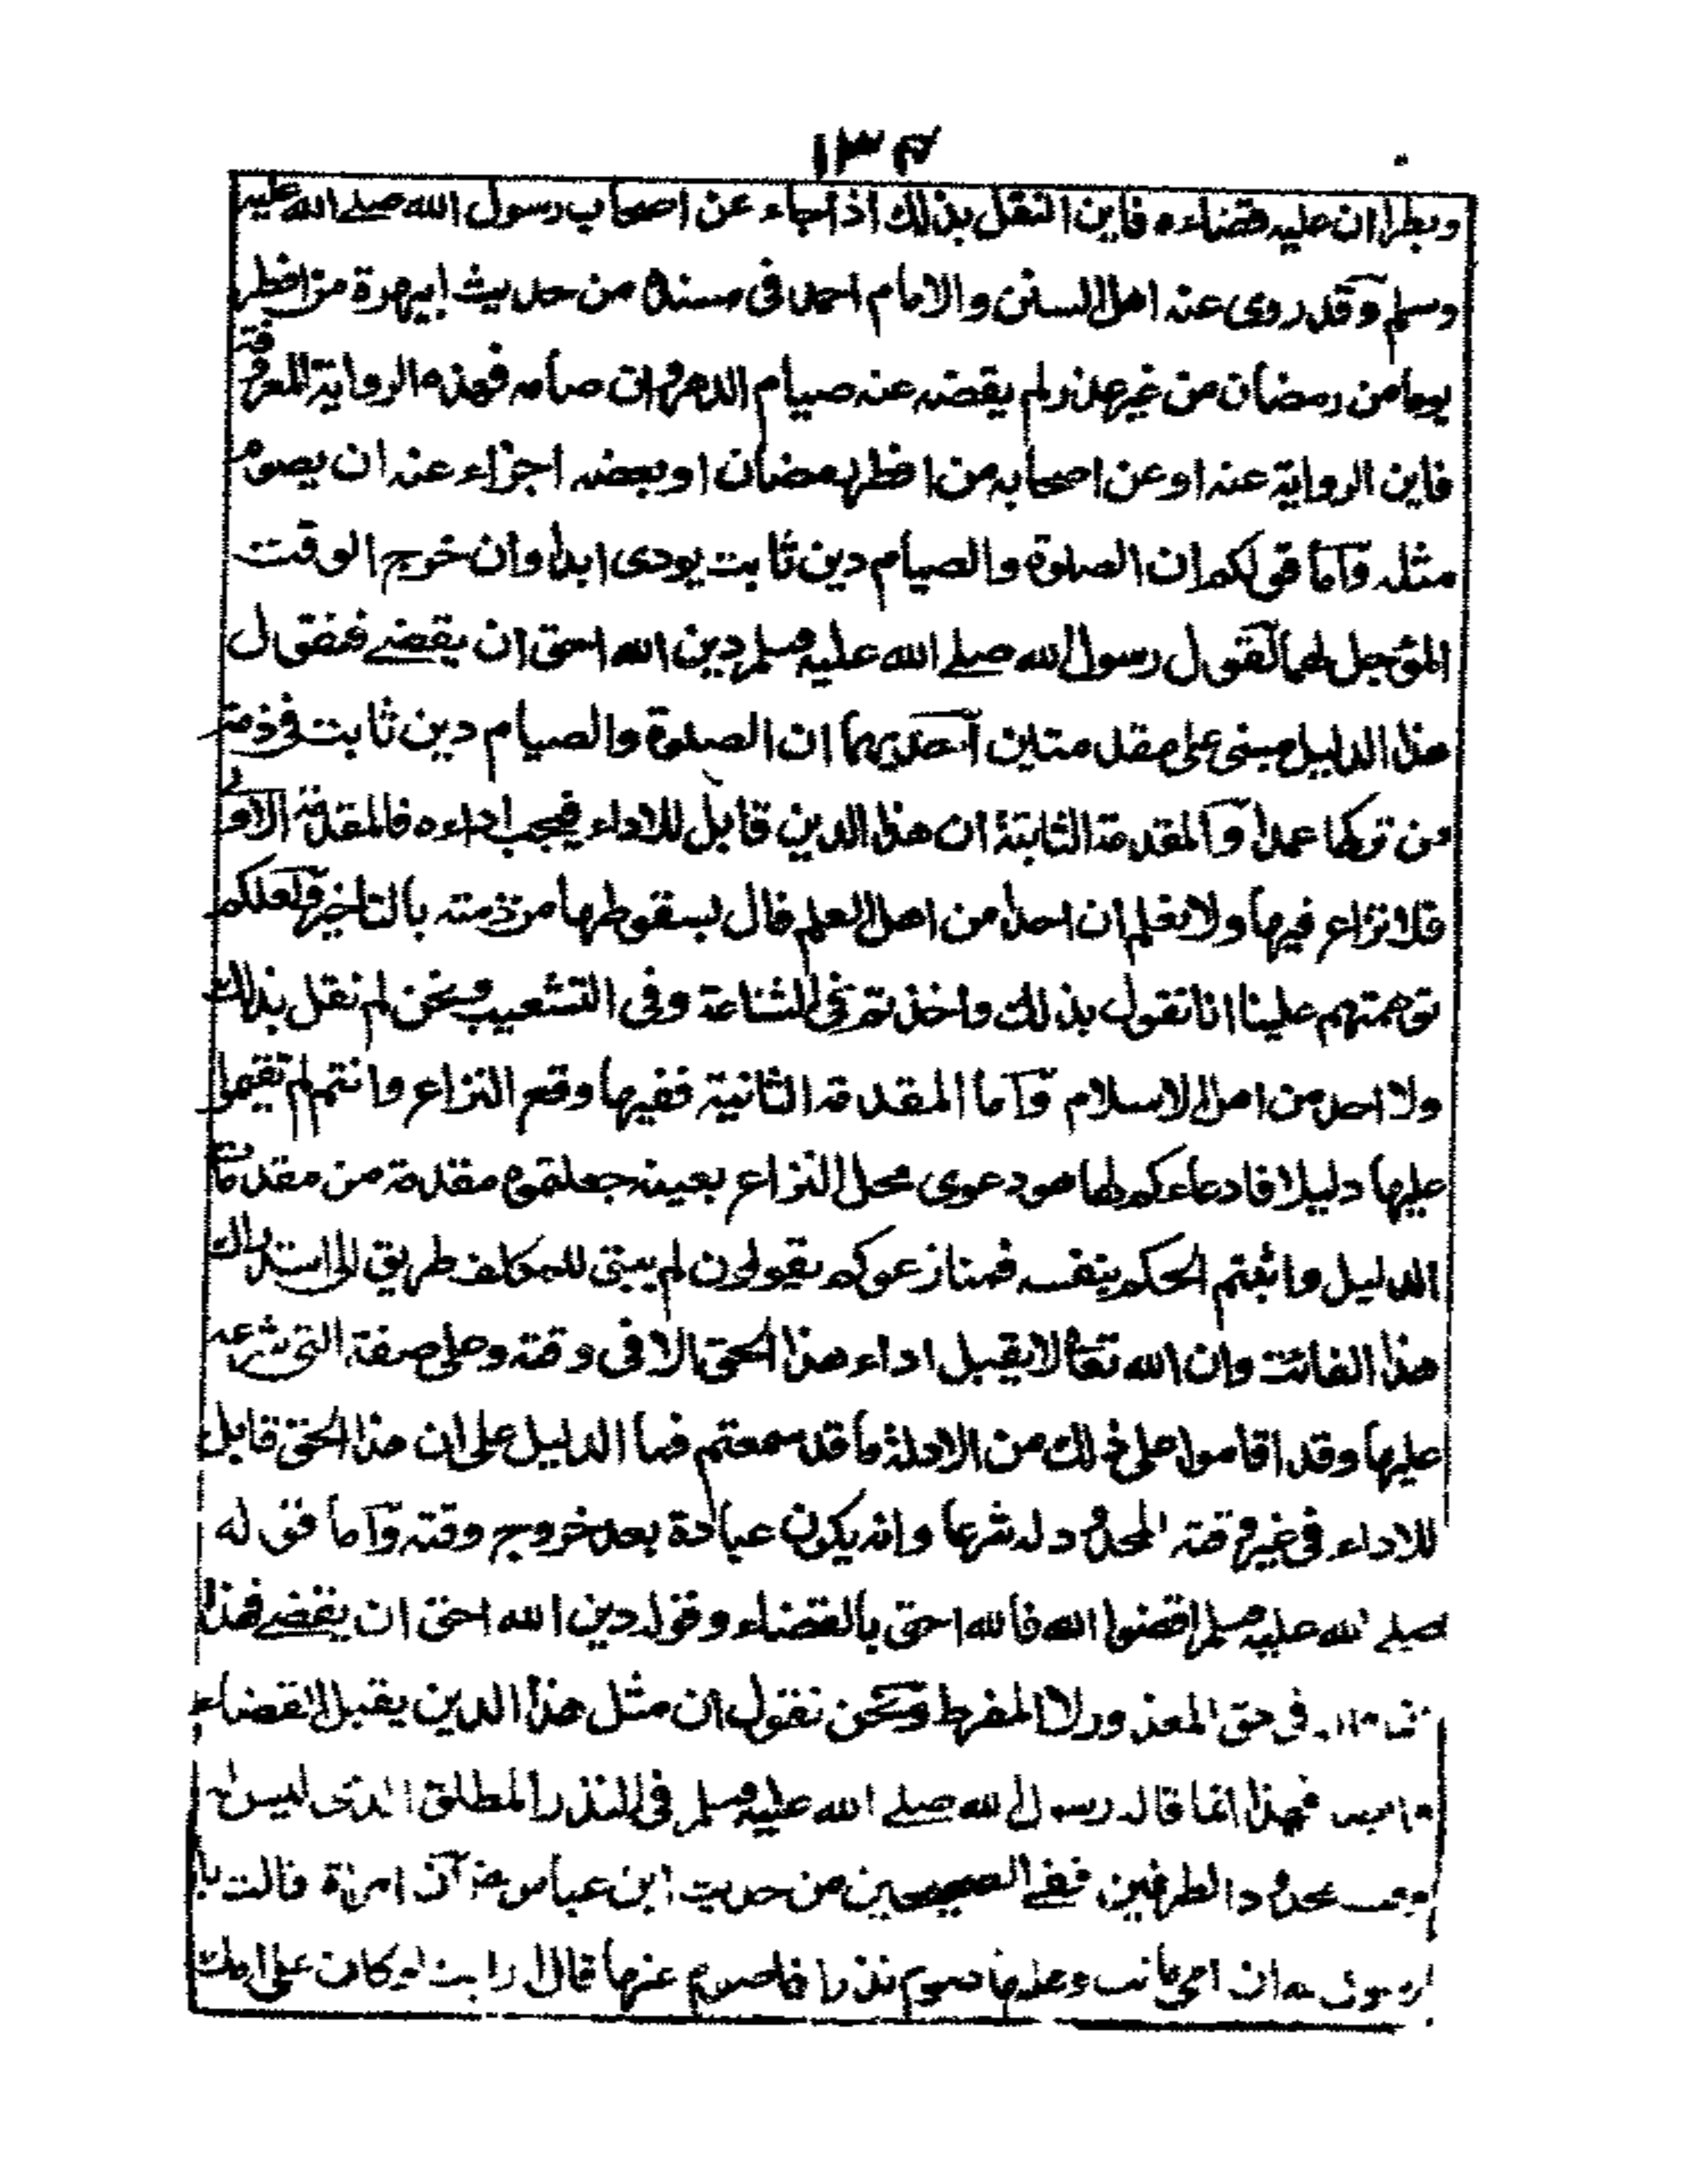 ١٣٤
ويطرا ان عليه قضاءه فاين النقل بذلك اذا جاء عن اصحاب رسول الله صلے الله عليه
وسلم وقد روى عنه اهل السنن والامام احمد فى مسنده من حديث ابيهرة من افطر
يوما من رمضان من غير عذر لم يقضه عنه صيام الدهر وان صامه فهذه الرواية المعروفة
فاين الرواية عنه او عن اصحابه من افطر رمضان او بعضه اجزاء عنه ان يصوم
مثله وآما قولكم ان الصلوة والصيام دين ثابت يودى ابدا وان خرج الوقت
المؤجل لهما لقول رسول الله صلے الله عليه وسلم دين الله احق ان يقضے فنقول
هذا الدليل مبنى على مقدمتين آحديهما ان الصلوة والصيام دين ثابت فى ذمة
من تركها عمدا وآلمقدمة الثانية ان هذا الدين قابل للاداء فيجب اداءه فالمقدمة الاولى
فلا نزاع فيها ولا نعلم ان احدا من اهل العلم قال بسقوطها من ذمته بالتاخير ولعلكم
توهمتهم علينا انا نقول بذلك واخذتم فى الشناعة وفى التشعيب ونحن لم نقل بذلك
ولا احد من اهل الاسلام وآما المقدمة الثانية ففيها وقع النزاع وانتم لم تقيموا
عليها دليلا فادعاءكم لها هو دعوى محل النزاع بعينه جعلتموه مقدمة من مقدمات
الدليل واثبتم الحكم بنفسه فمنازعوكم يقولون لم يبق للمكلف طريق الى استدراك
هذا الفائت وان الله تعالى لا يقبل اداء هذا الحق الا فى وقته وعلى صفة التى شرعه
عليها وقد اقاموا على ذلك من الادلة ما قد سمعتم فما الدليل على ان هذا الحق قابل
للاداء فى غير وقته المحدود له شرعا وانه يكون عبادة بعد خروج وقته وآما قوله
صلے الله عليه وسلم اقضوا الله فالله احق بالقضاء وقوله دين الله احق ان يقضے فهذا
فى حق المعذور لا المفرط ونحن نقول ان مثل هذا الدين يقبل القضاء
فهذا انما قاله رسول الله صلے الله عليه وسلم فى النذر المطلق الذى ليس له
وقت محدود الطرفين ففے الصحيحين من حديث ابن عباس رض آن امراة قالت يا
رسول الله ان امى ماتت وعليها صوم نذر افاصوم عنها قال ارايت لو كان على امك